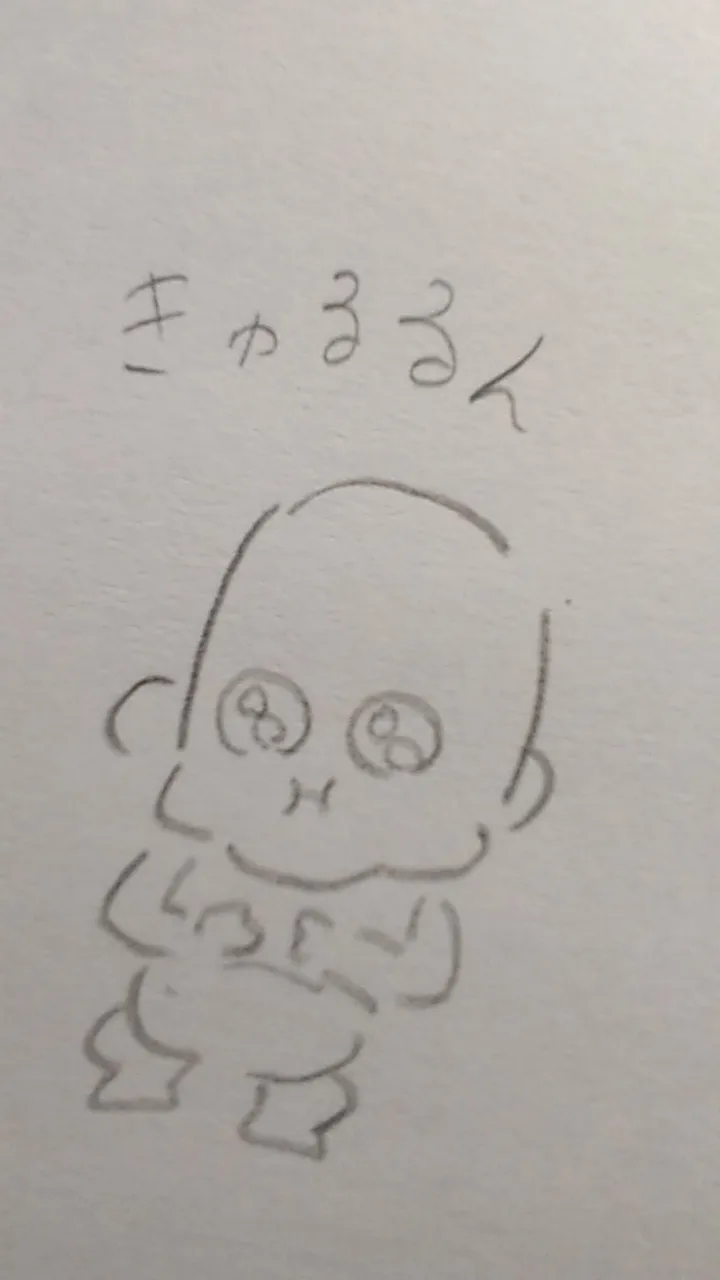 きゃるるん